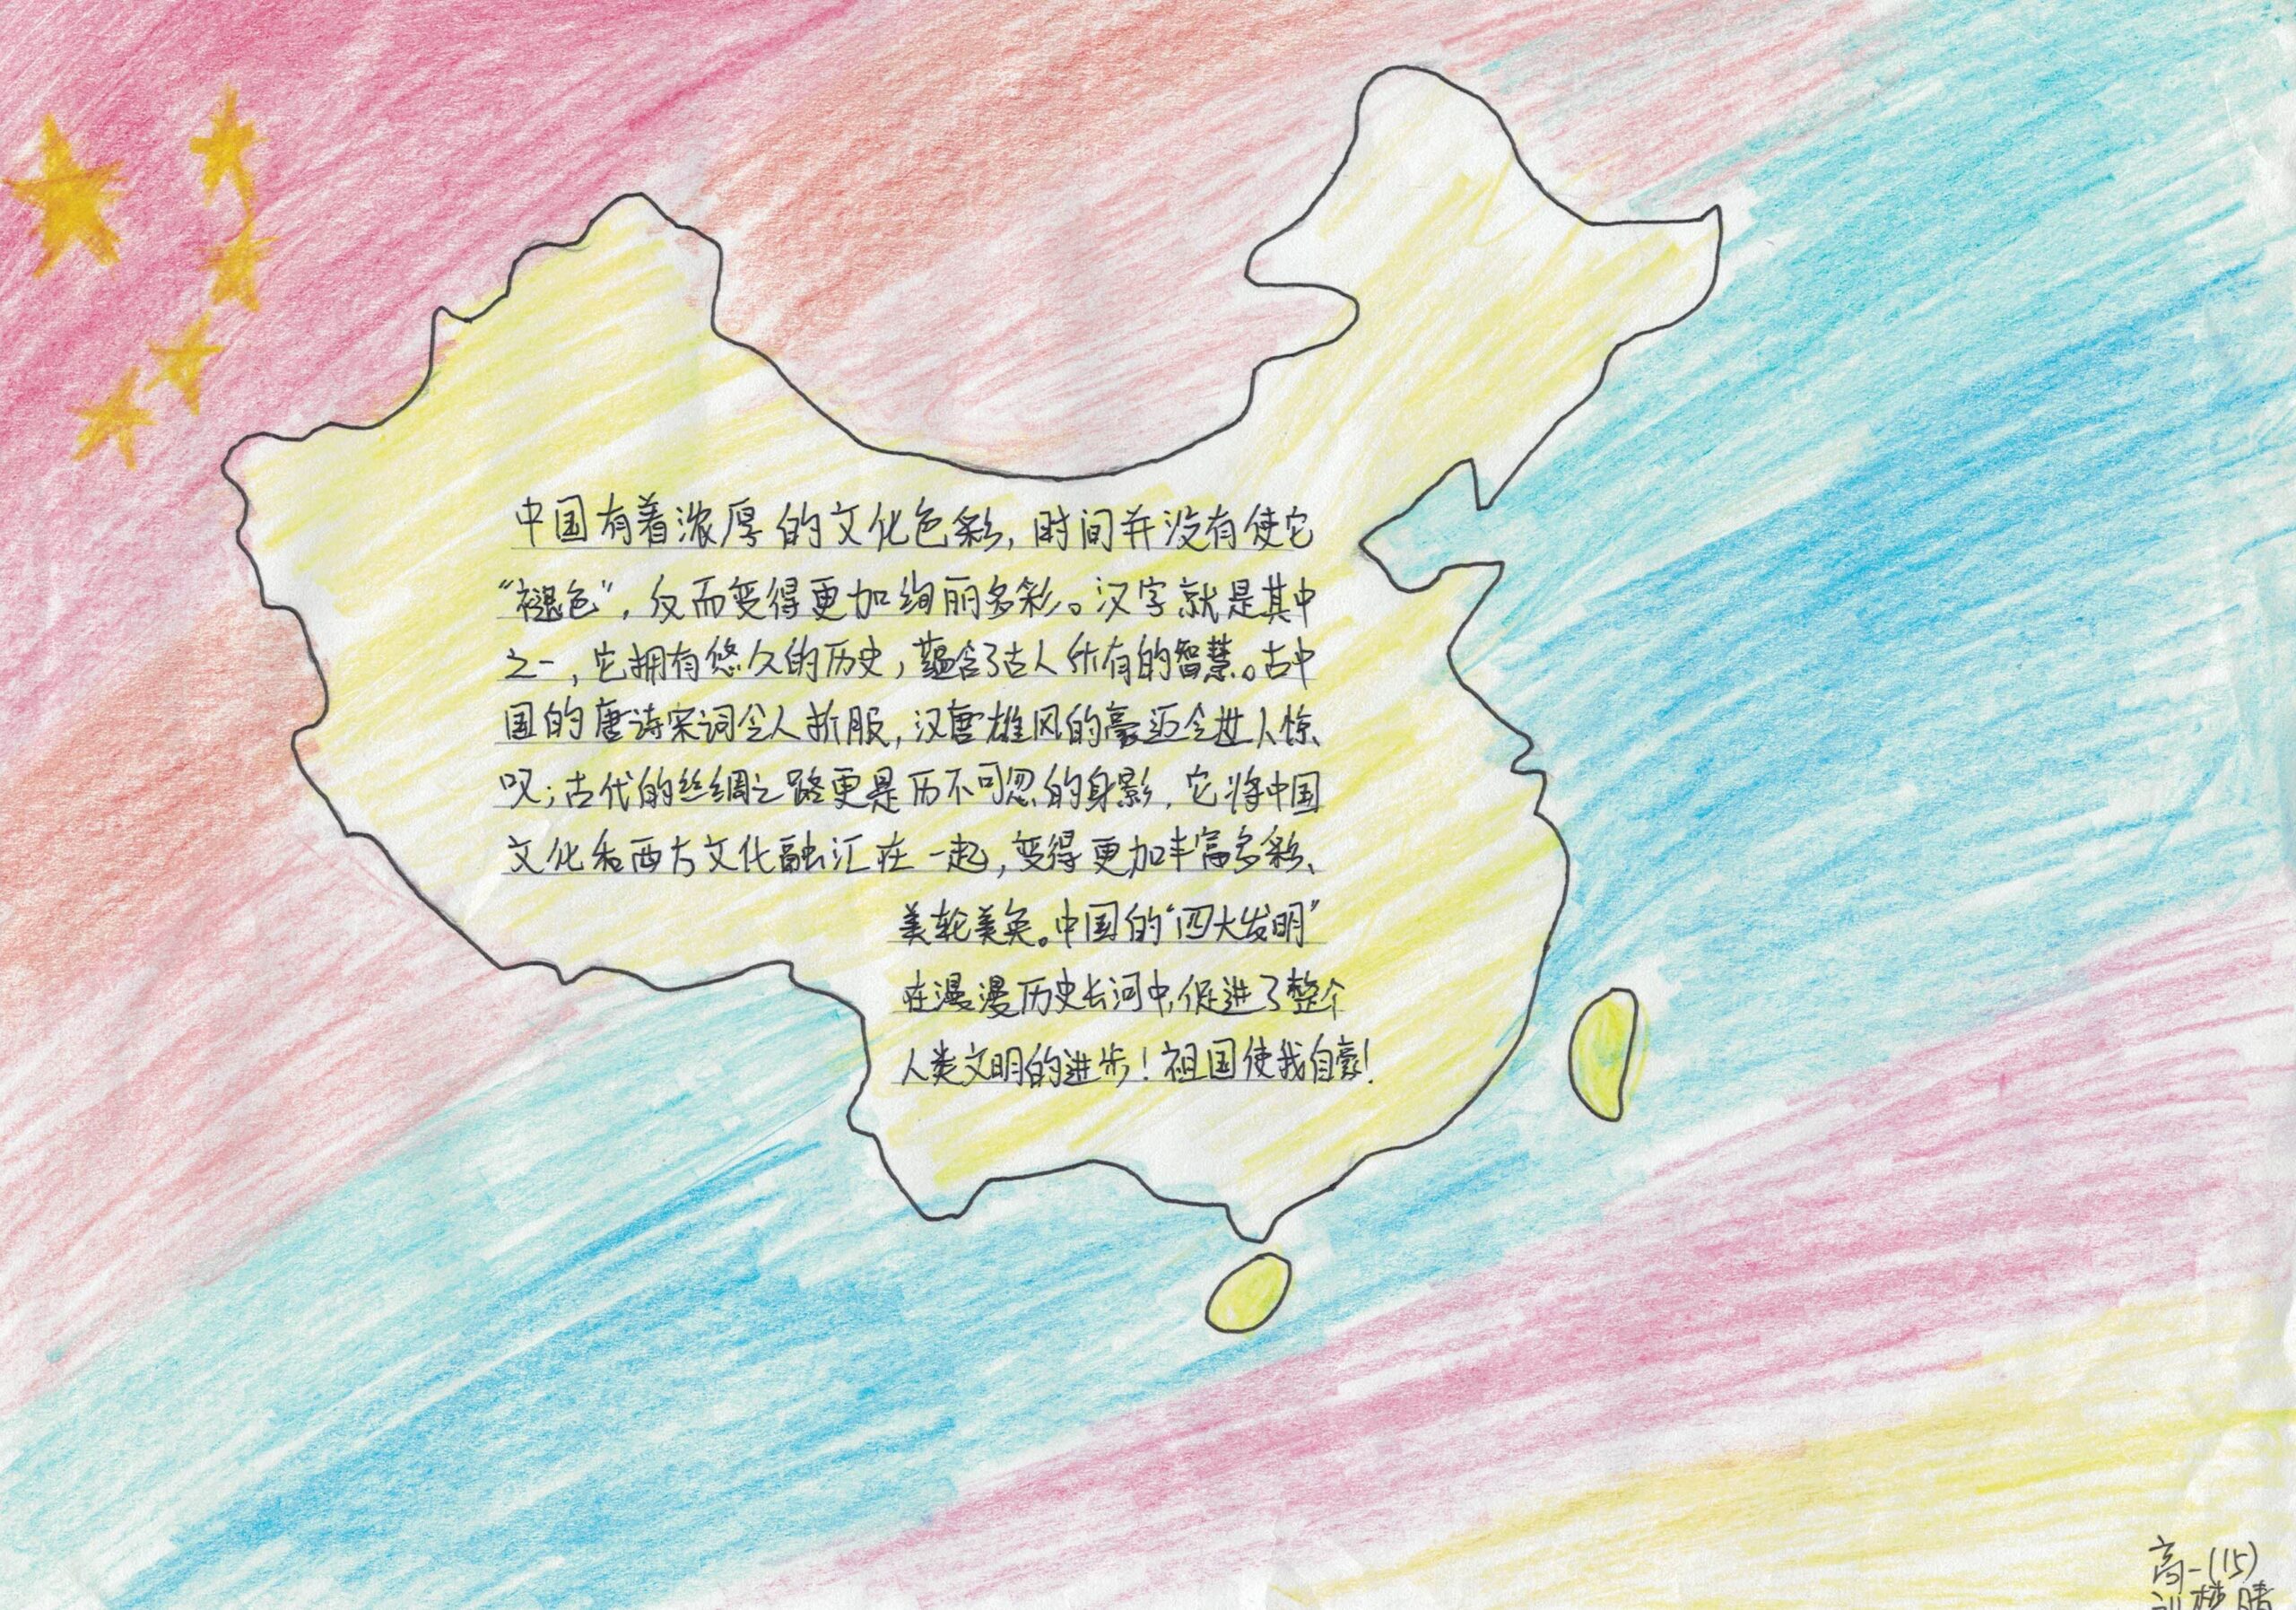 中国有着浓厚的文化色彩，时间并没有使它
“褪色”，反而变得更加绚丽多彩。汉字就是其中
之一，它拥有悠久的历史，蕴含了古人所有的智慧。古中
国的唐诗宋词令人折服，汉唐雄风的豪迈令世人惊
叹；古代的丝绸之路更是历不可忽的身影，它将中国
文化和西方文化融汇在一起，变得更加丰富多彩、
美轮美奂。中国的“四大发明”
在漫漫历史长河中，促进了整个
人类文明的进步！祖国使我自豪！
高一(15)